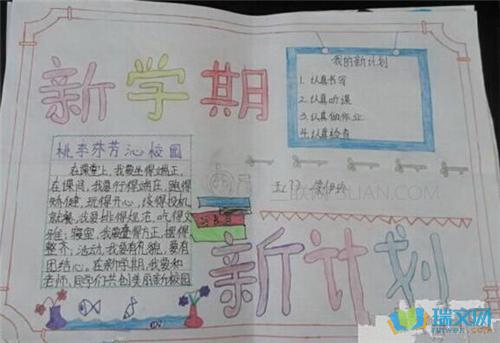 新学期
我的新计划
1.认真书写
2.认真听课
3.认真做作业
4.认真检查
桃李芬芳沁校园
在课堂上,我要坐得端正,
在课间,我要行得端庄,跑得
矫健,玩得开心,谈得投机
就餐,我要排得规范,吃得文
雅;寝室,我要叠得方正,摆得
整齐;活动,我要有礼貌,要有
团结心。在新学期,我要和
老师,同学们共创美丽新校园
LIAN.COM
新计划
瑞文网